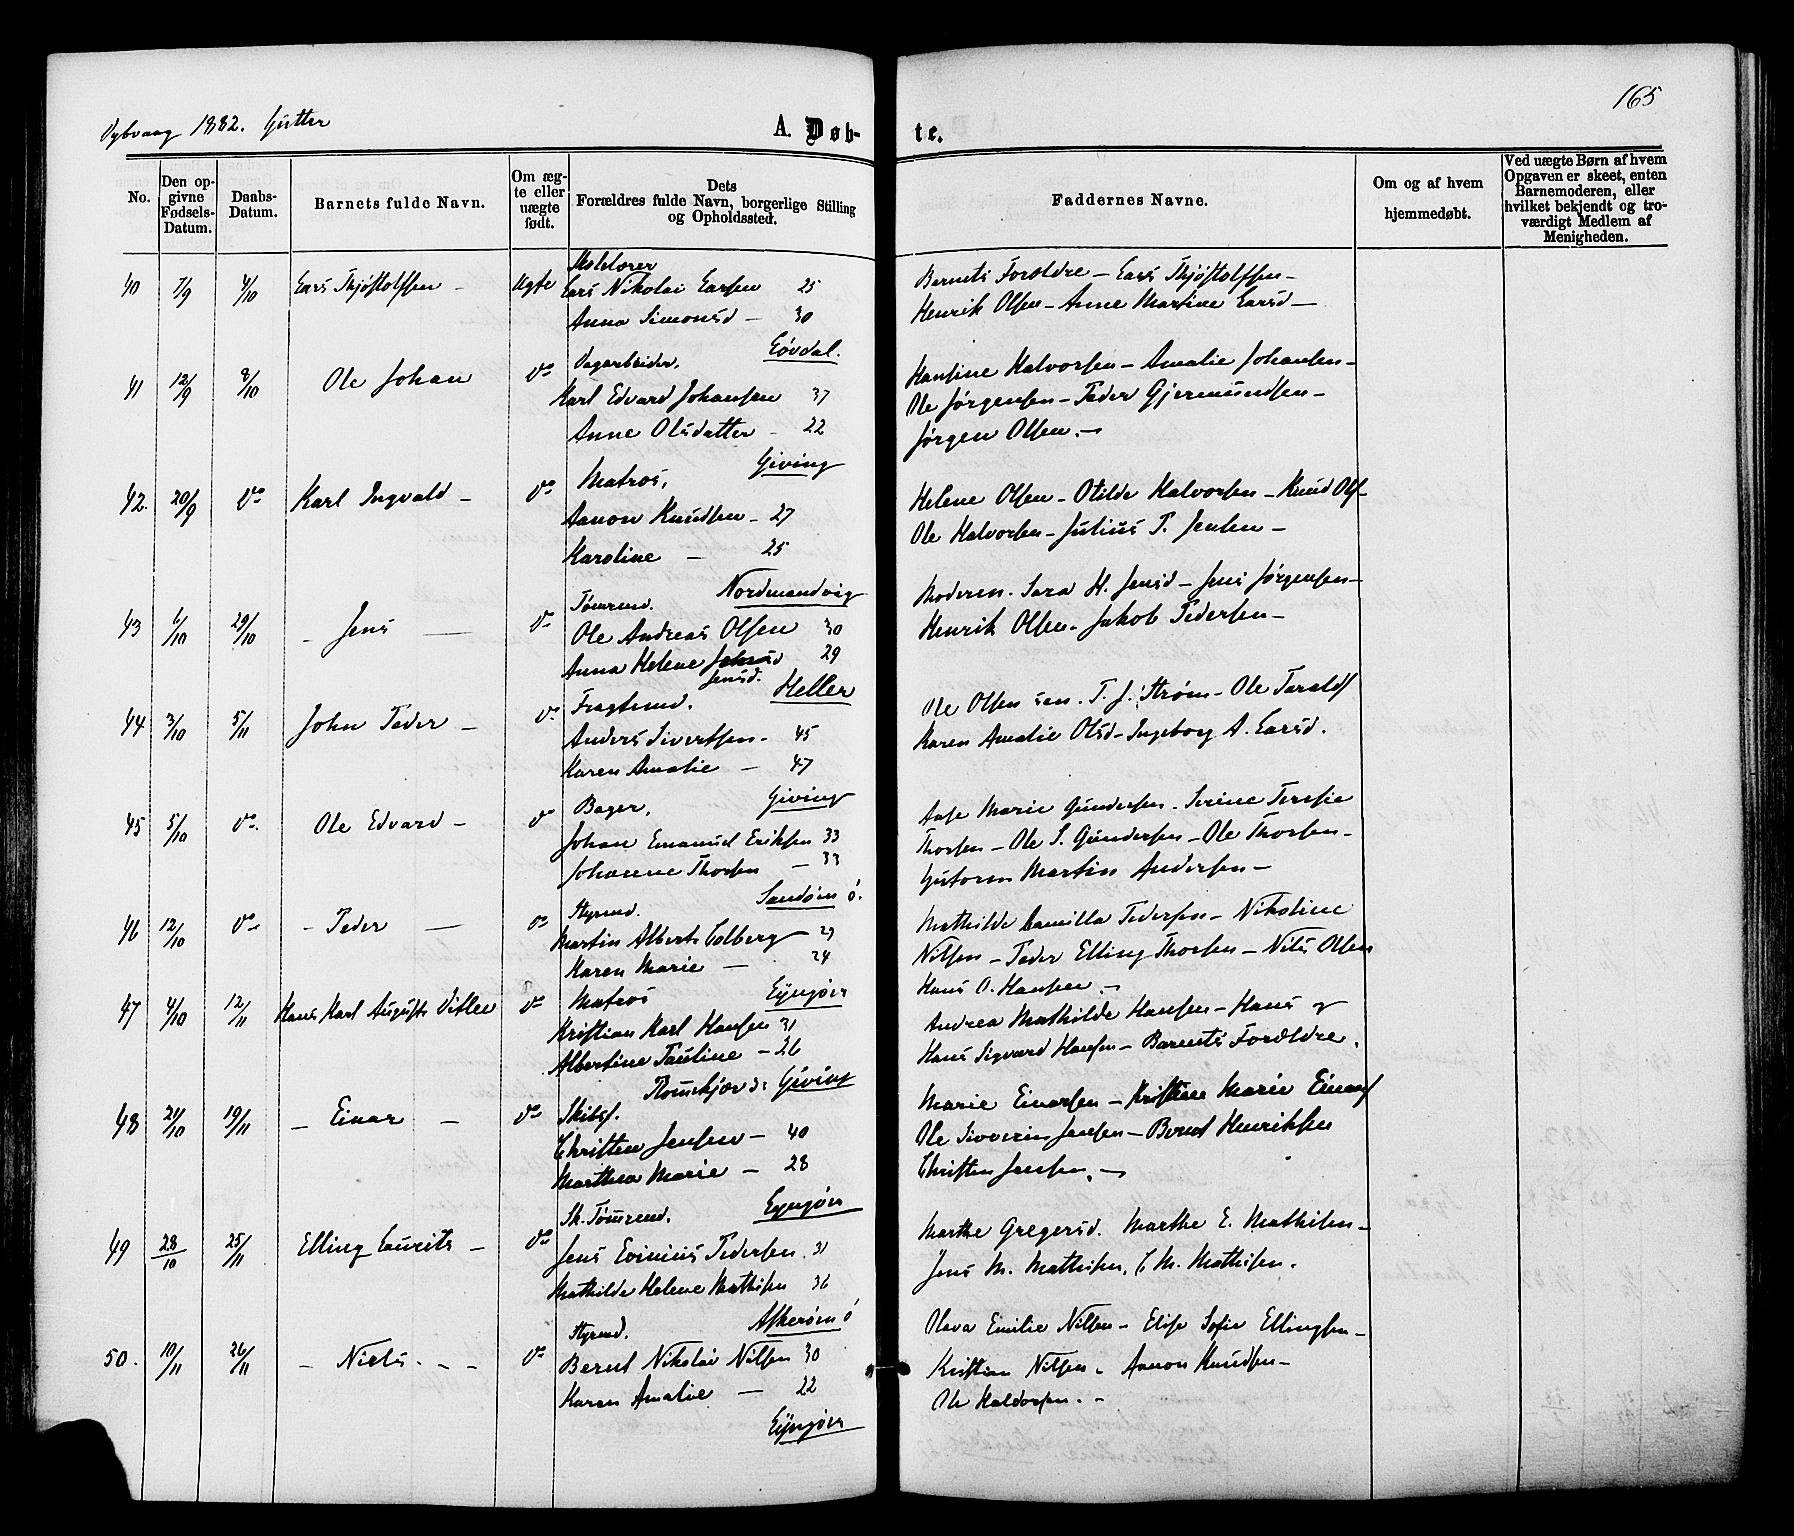 Dybvaag 1882. Gutter
165
A. Døb-
te.
No.
Den op-
givne
Fødsels-
Datum.
Daabs-
Datum.
Barnets fulde Navn.
Om æg-
te eller
uægte
født.
Dets
Forældres fulde Navn, borgerlige Stilling
og Opholdssted.
Faddernes Navne.
Om og af hvem
hjemmedøbt.
Ved uægte Børn af hvem
Opgaven er skeet, enten
Barnemoderen, eller
hvilket bekjendt og tro-
værdigt Medlem af
Menigheden.
40 7/9 4/10 Lars Thjøstolfsen - Ægte
Skolelærer
Lars Nikolai Larsen 25
Anna Simonsd - 30
Løvdal.
Barnets Forældre - Lars Thjøstolfsen -
Henrik Olsen - Anne Martine Larsd -
41 12/9 8/10 Ole Johan Do
Dagarbeider.
Karl Edvard Johansen 37
Anne Olsdatter - 22
Giving
Hansine Halvorsen - Amalie Johansen -
Ole Jørgensen - Peder Gjermundsen -
Jørgen Olsen. -
42. 20/9 Do Karl Ingvald - Do
Matros,
Aanon Knudsen - 27
Karoline - 25
Nordmandvig
Helene Olsen - Otilde Halvorsen - Knud Ols-
Ole Halvorsen - Julius T. Jensen -
43 6/10 29/10 - Jens - Do
Tømrmd.
Ole Andreas Olsen 30
Anna Helene 29
Jensd.
Heller
Moderen. Sara H. Jensd - Jens Jørgensen -
Henrik Olsen. Jakob Pedersen -
44 3/10 5/11 John Peder - Do
Fragtemd.
Anders Sivertsen - 45
Karen Amalie - 47
Giving
Ole Olsen sen. T. J. Strøm - Ole Taralds
Karen Amalie Olsd - Ingeborg A. Larsd.
45 5/10 Do. Ole Edvard - Do
Bager,
Johan Emanuel Eriksen 33
Johanne Thorsen - 33
Sandøen ø.
Aase Marie Gundersen. Serine Teresie
Thorsen - Ole S. Gundersen - Ole Thorsen -
Gutorm Martin Andersen -
46 12/10 Do - Peder - Do
Styrmd.
Martin Alberts Colberg - 29
Karen Marie - 24
Lyngøer
Mathilde Camilla Pedersen - Nikoline
Nilsen - Peder Elling Thorsen - Nils Olsen
Hans O. Hansen. -
47 4/10 12/11 Hans Karl August Do
Matros
Kristian Karl Hansen 31
Albertine Pauline - 26
Giving
Andrea Mathilde Hansen - Hans og
Hans Sigvard Hansen - Barnets Forældre.
48 21/10 19/11 - Einar - Do
Skibsf.
Christen Jensen - 40
Marthea Marie - 28
Lyngøer
Marie Einarsen - Kristine Marie Einars
Ole Severin Jensen - Bernt Henriksen
Christen Jensen. -
49 28/10 25/11 Elling Laurits - Do
Sk. Tømrmd.
Jens Pedersen. 31
Mathilde Helene Mathisen 36
Askerøen ø
Marthe Gregersd. Marthe E. Mathisen -
Jens M. Mathisen. C. M. Mathisen.
50. 10/11 26/11 - Niels. - - Do
Styrmd.
Bernt Nikolai Nilsen 30
Karen Amalie - 22
Lyngøer
Olava Emilie Nilsen - Elise Sofie Ellingsen -
Kristian Nilsen - Aanon Knudsen -
Ole Haldorsen. -